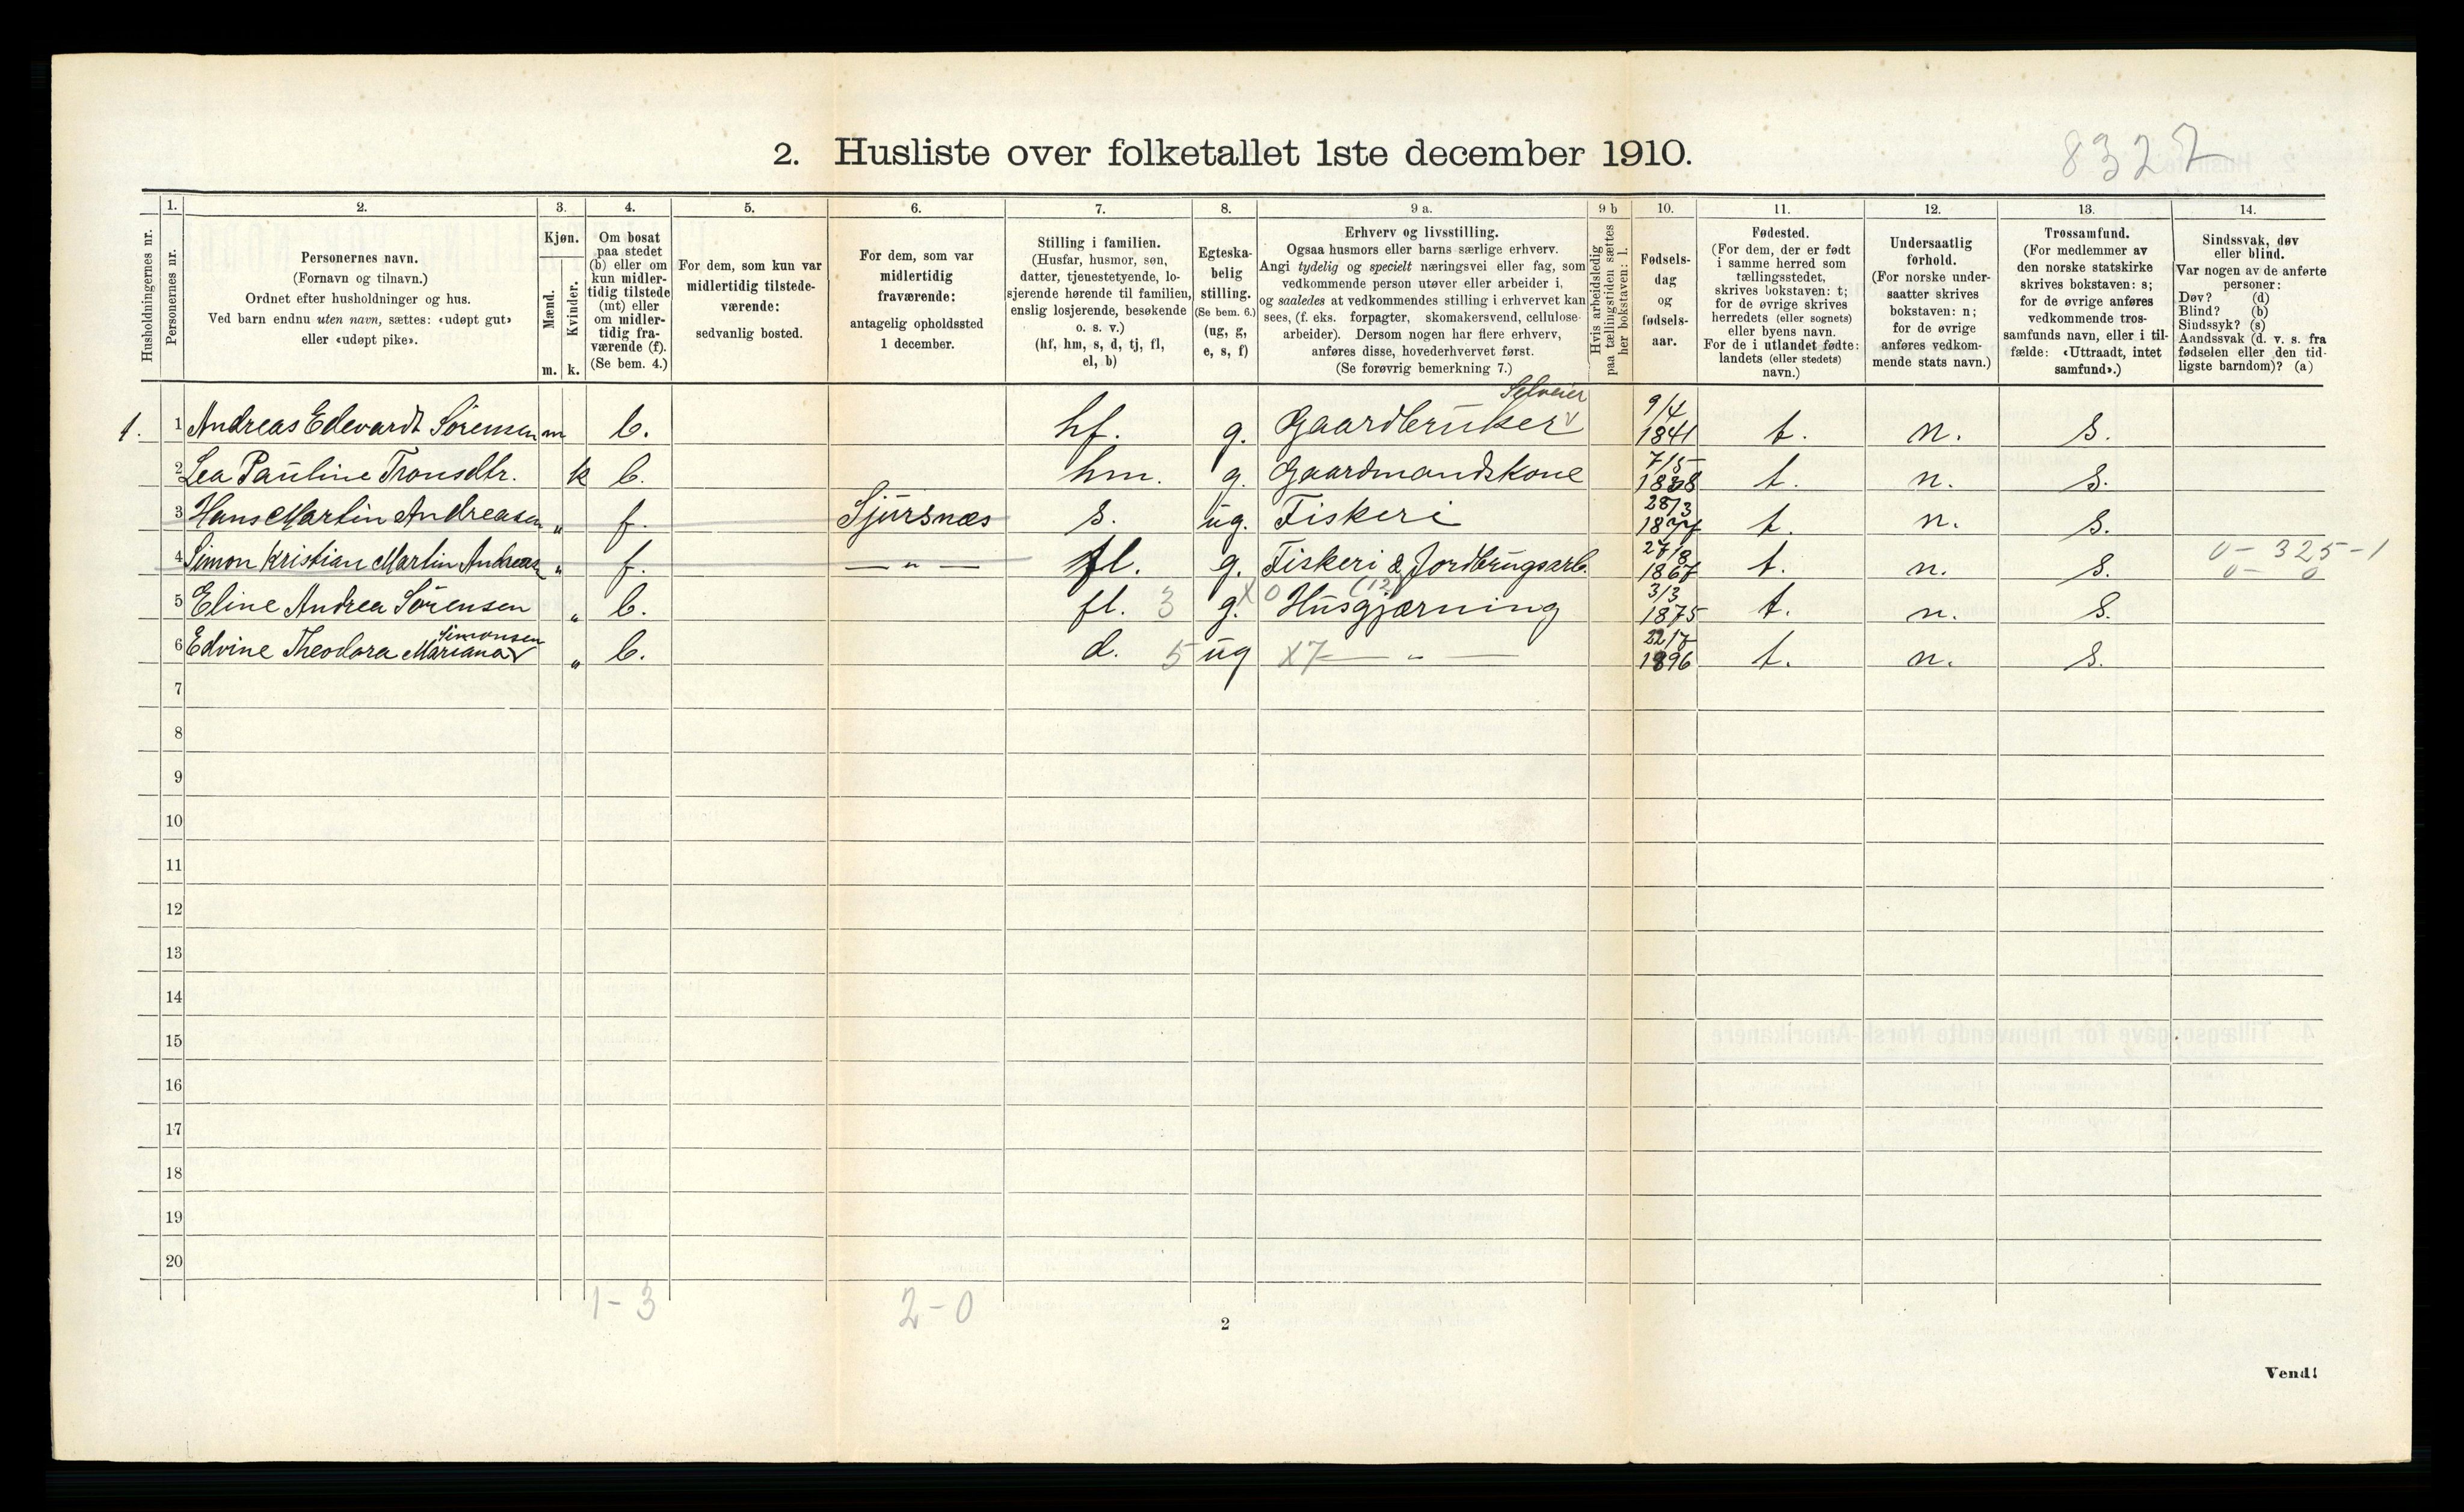 2. Husliste over folketallet 1ste december 1910.
8327
Husholdningernes nr.
1.
Personernes nr.
2.
Personernes navn.
(Fornavn og tilnavn.)
Ordnet efter husholdninger og hus.
Ved barn endnu uten navn, sættes: «udøpt gut»
eller «udøpt pike».
3.
Kjøn.
Mænd.
Kvinder.
m. k.
4.
Om bosat
paa stedet
(b) eller om
kun midler-
tidig tilstede
(mt) eller
om midler-
tidig fra-
værende (f).
(Se bem. 4.)
5.
For dem, som kun var
midlertidig tilstede-
værende:
sedvanlig bosted.
6.
For dem, som var
midlertidig
fraværende:
antagelig opholdssted
1 december.
7.
Stilling i familien.
(Husfar, husmor, søn,
datter, tjenestetyende, lo-
sjerende hørende til familien,
enslig losjerende, besøkende
o. s. v.)
(hf, hm, s, d, tj, fl,
el, b)
8.
Egteska-
belig
stilling.
(Se bem. 6.)
(ug, g,
e, s, f)
9 a.
Erhverv og livsstilling.
Ogsaa husmors eller barns særlige erhverv.
Angi tydelig og specielt næringsvei eller fag, som
vedkommende person utøver eller arbeider i,
og saaledes at vedkommendes stilling i erhvervet kan
sees, (f. eks. forpagter, skomakersvend, cellulose-
arbeider). Dersom nogen har flere erhverv,
anføres disse, hovederhvervet først.
(Se forøvrig bemerkning 7.)
9 b
Hvis arbeidsledig
paa tællingstiden sættes
her bokstaven: l.
10.
Fødsels-
dag
og
fødsels-
aar.
11.
Fødested.
(For dem, der er født
i samme herred som
tællingsstedet,
skrives bokstaven: t;
for de øvrige skrives
herredets (eller sognets)
eller byens navn.
For de i utlandet fødte:
landets (eller stedets)
navn.)
12.
Undersaatlig
forhold.
(For norske under-
saatter skrives
bokstaven: n;
for de øvrige
anføres vedkom-
mende stats navn.)
13.
Trossamfund.
(For medlemmer av
den norske statskirke
skrives bokstaven: s;
for de øvrige anføres
vedkommende tros-
samfunds navn, eller i til-
fælde: «Uttraadt, intet
samfund».)
14.
Sindssvak, døv
eller blind.
Var nogen av de anførte
personer:
Døv? (d)
Blind? (b)
Sindssyk? (s)
Aandssvak (d. v. s. fra
fødselen eller den tid-
ligste barndom)? (a)
Selveier
1. 1 Andreas Edevardt Sørensen m b. hf. g. Gaardbruker 9/4 1841 t. n. s.
2 Lea Pauline Tronsdtr. k b. hm. g. Gaardmandskone 7/5 1838 t. n. s.
3 Hans Martin Andreasen " f. Sjursnæs s. ug. Fiskeri 28/3 1877 t. n. s.
4 Simon Kristian Martin Andreas " f. — " — fl. g. Fiskeri & Jordbrugsarb. 27/8 1867 t. n. s. 0 - 325 - 1
0 - 0
5 Eline Andrea Sørensen " b. fl. 3 g. X 0 Husgjærning (12) 3/3 1875 t. n. s.
Simonsen
6 Edvine Theodora Mariana " b. d. 5 ug X7 — " — 22/7 1896 t. n. s.
7
8
9
10
11
12
13
14
15
16
17
18
19
20
1 - 3 2 - 0
2
Vend!